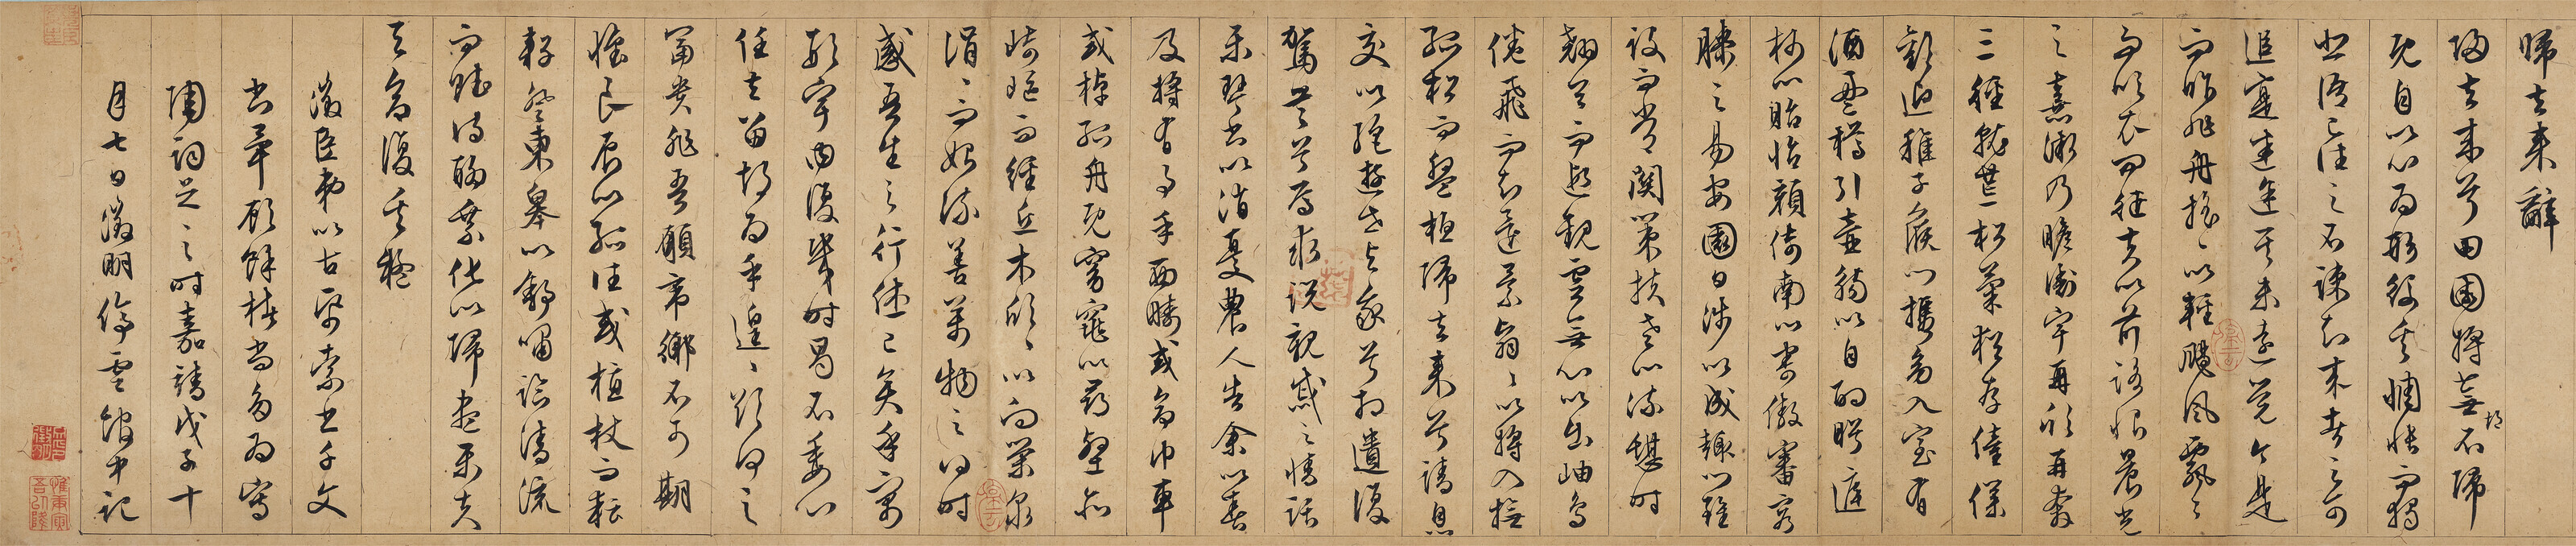 歸去來辭
歸去來兮田園將蕪胡不歸
既自以心為形役奚惆悵而獨
悲悟已往之不諫知來者之可
追寔迷途其未遠覺今是
而昨非舟搖〻以輕颺風飄〻
而吹衣問征夫以前路恨晨光
之熹微乃瞻衡宇再欣再奔
三徑就荒松菊猶存僮僕
歡迎稚子候門攜幼入室有
酒盈樽引壺觴以自酌眄庭
柯以怡顏倚南以寄傲審容
膝之易安園日涉以成趣門雖
設而常關策扶老以流憩時
翹首而遐觀雲無心以出岫鳥
倦飛而知還景翳〻以將入撫
孤松而盤桓歸去來兮請息
交以絕遊世與我兮相遺復
駕言兮焉求說親戚之情話
樂琴書以消憂農人告余以春
及將有事乎西疇或命巾車
或棹孤舟既窈窕以尋壑亦
崎嶇而經丘木欣〻以向榮泉
涓〻而始流善萬物之得時
感吾生之行休已矣乎寓
形宇內復幾時曷不委心
任去留胡為乎遑〻欲何之
富貴非吾願帝鄉不可期
懷良辰以孤往或植杖而耘
耔登東皋以舒嘯臨清流
而賦詩聊乘化以歸盡樂夫
天命復奚疑
徵臣弟以古紙索書千文
書畢顧餘楮尚多為寫
陶詞足之時嘉靖戊子十
月七日徵明停雲館中記